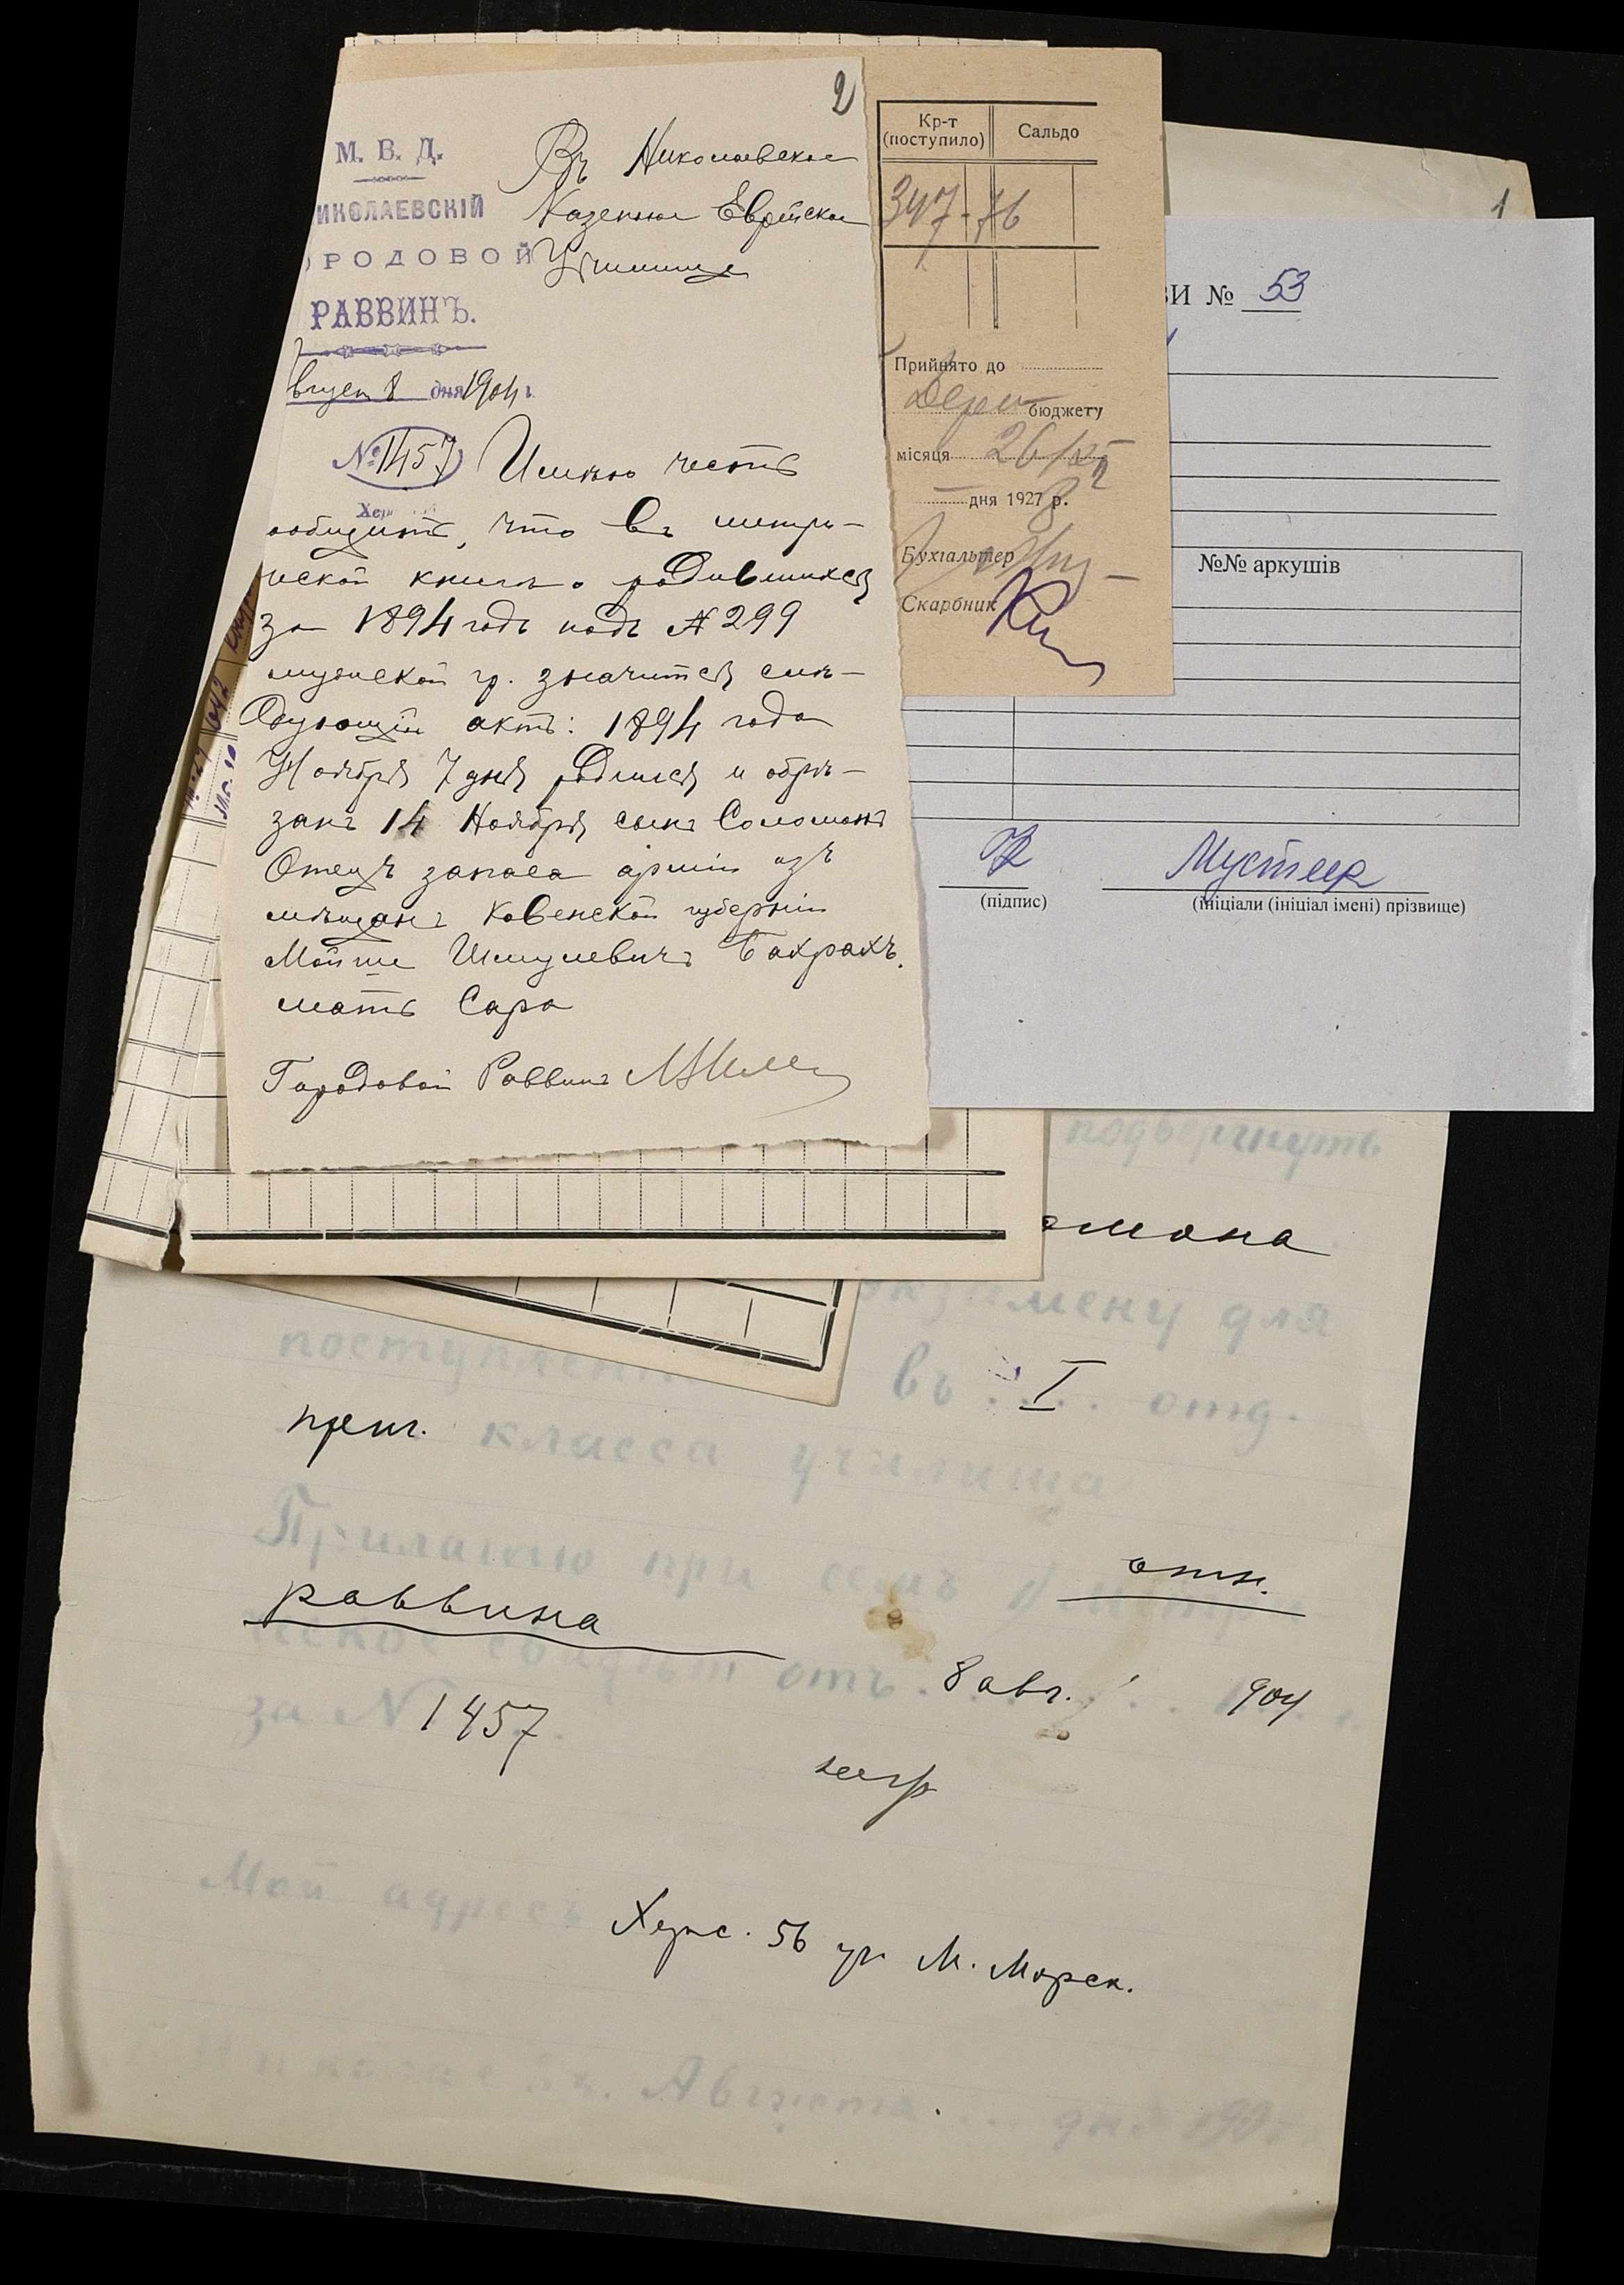 2
М. В. Д.
ИКОЛАЕВСКІЙ
РОДОВОЙ
РАВВИНЪ.
Въ Николаевское
Казенное Еврейское
Училище
8 дня 1904 г.
№ 1457
Имѣю честь
сообщить, что въ метри-
ческой книгѣ о родившихся
за 1894 годъ подъ № 299
мужской гр. значится слѣ-
дующій актъ: 1894 года
Ноября 7 дня родился и обрѣ-
занъ 14 Ноября сынъ Соломонъ
Отецъ запаса арміи изъ
мѣщанъ Ковенской губерніи
Мойше Шмулевичъ Бахрахъ.
мать Сара
Городовой Раввинъ
Кр-т
(поступило)
Сальдо
347-76
Прийнято до
бюджету
місяця 26/
дня 1927 р.
Бухгальтер
Скарбник
1
И № 53
№№ аркушів
Мустеер
(підпис)
(ініціали (ініціал імені) прізвище)
подвергнуть
омона
экзамену для
поступлен въ I отд.
приг. класса училища
Прилагаю при семъ метри
отн.
раввина
ческое свидѣт отъ 8 авг. 904
за № 1457
Мой адресъ Херс. 56 уг. М. Морск.
Николаевъ. Августа дня 190